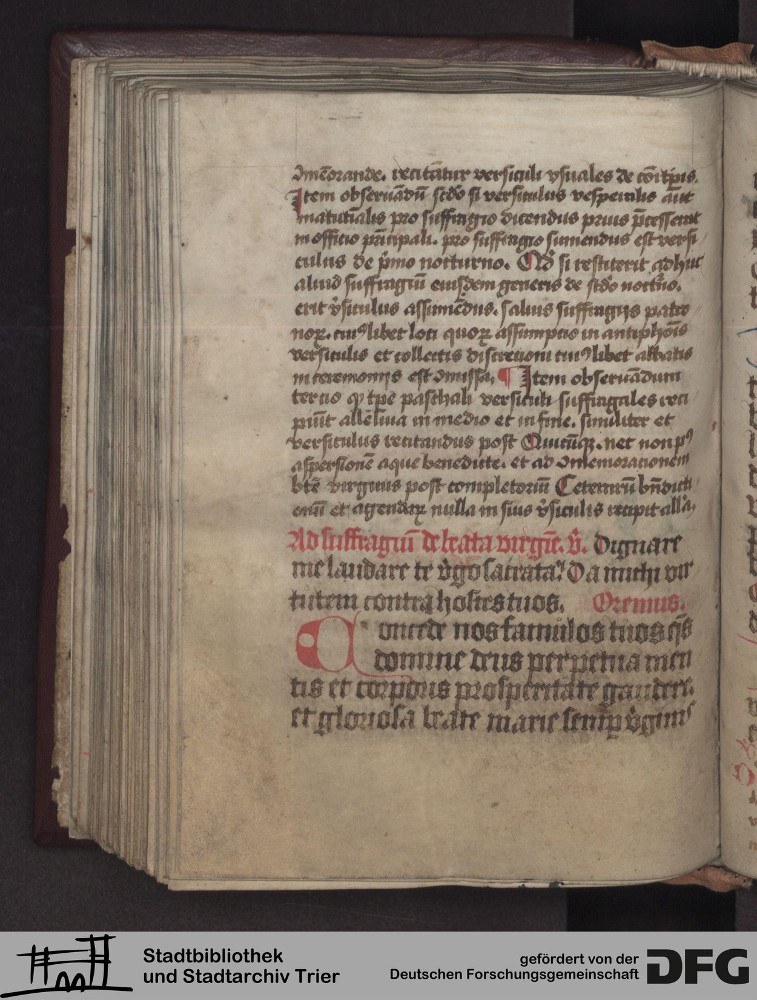 Om̄orande. recitātur versiculi vsuales de cōrꝑis.
Item obseruādū scd̄o si versiculus vesꝑtialis aut
matutīalis pro suffragio dicendus prius p̄cesserit
in officio prīcipali. pro suffragio sumendus est versi
culus de p̄mo nocturno. Qd̓ si restiterit adhuc
aliud suffragiū eiusdem generis de scd̄o noct̓no.
erit v̓siculus assumēdus. saluis suffragijs patro
noꝝ. cuiꝰlibet loci quoꝝ assumptio in antiphōis
versiculis et collectis discretioni cuiꝰlibet abbatis
in ceremonijs est ꝯmissa, ¶ Item obseruādum
tercio ꝙ tꝑe paschali versiculi suffragiales reci
piūt alleluia in medio et in fine. similiter et
versiculus recitandus post Quicūqꝫ. nec non pꝰ
aspersionē aque benedicte. et ad ꝯmemorationem
btē virginis post completoriū Ceterarū bn̄dicti
onū et agendaꝝ nulla in suis v̓siculis recipit all̓a.
Ad suffragiū de beata virgīe. v̓. Dignare
me laudare te v̓go sacrata? Da michi vir
tutem contra hostes tuos. Oremus.
Concede nos famulos tuos qs̄
domine deus perpetua men
tis et corporis prosperitate gaudere.
et gloriosa beate marie semꝑ v̓ginis
Stadtbibliothek
und Stadtarchiv Trier
gefördert von der
Deutschen Forschungsgemeinschaft
DFG